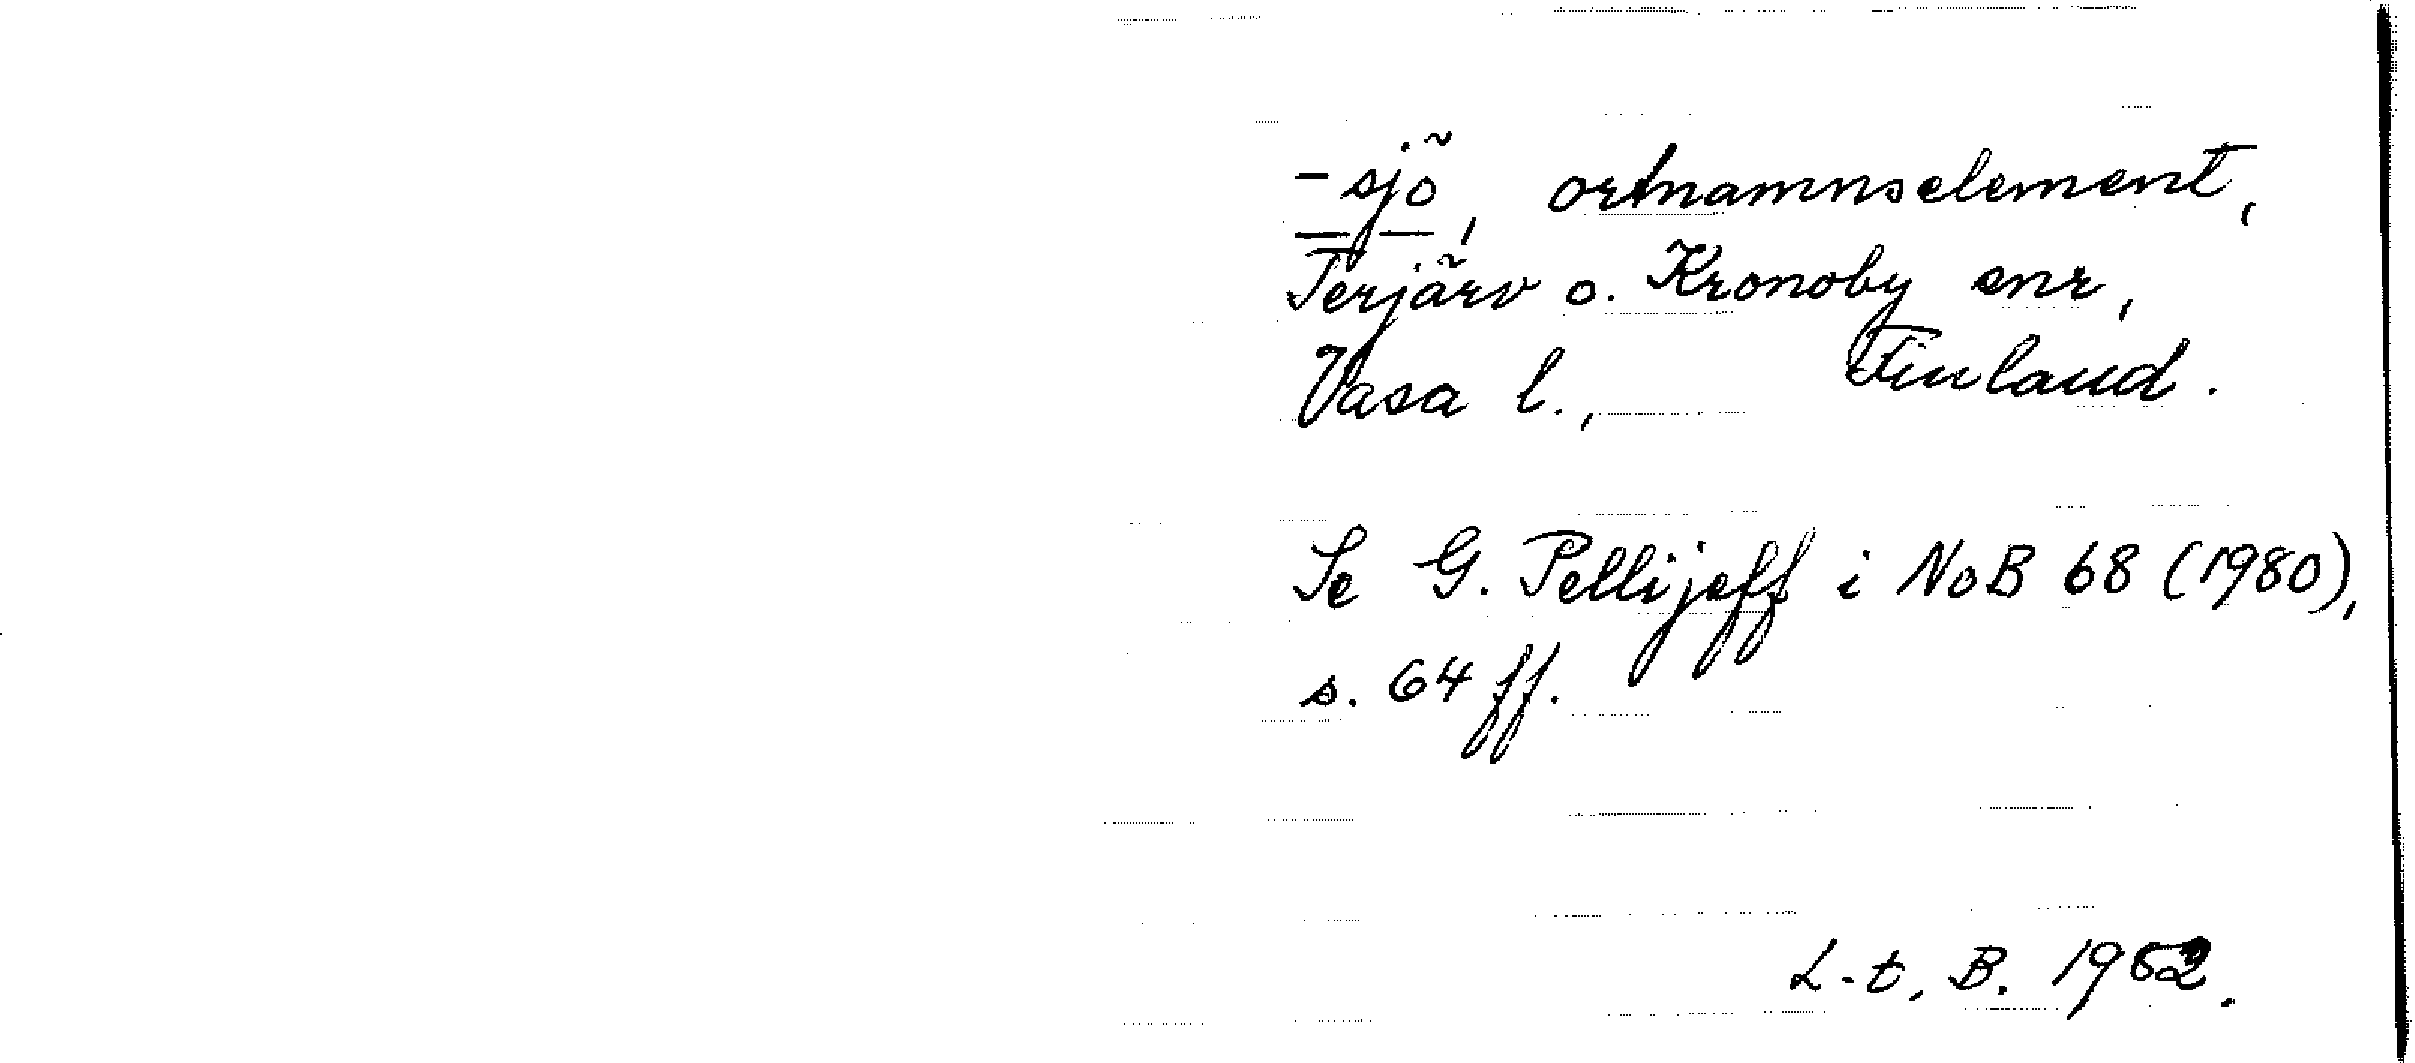 -sjö, ortnamnselement,
Terjärv o. Kronoby snr,
Vasa l., Finland.
Se G. Pellijeff i NoB 68 (1980),
s. 64 ff.
L-t, B. 1982.